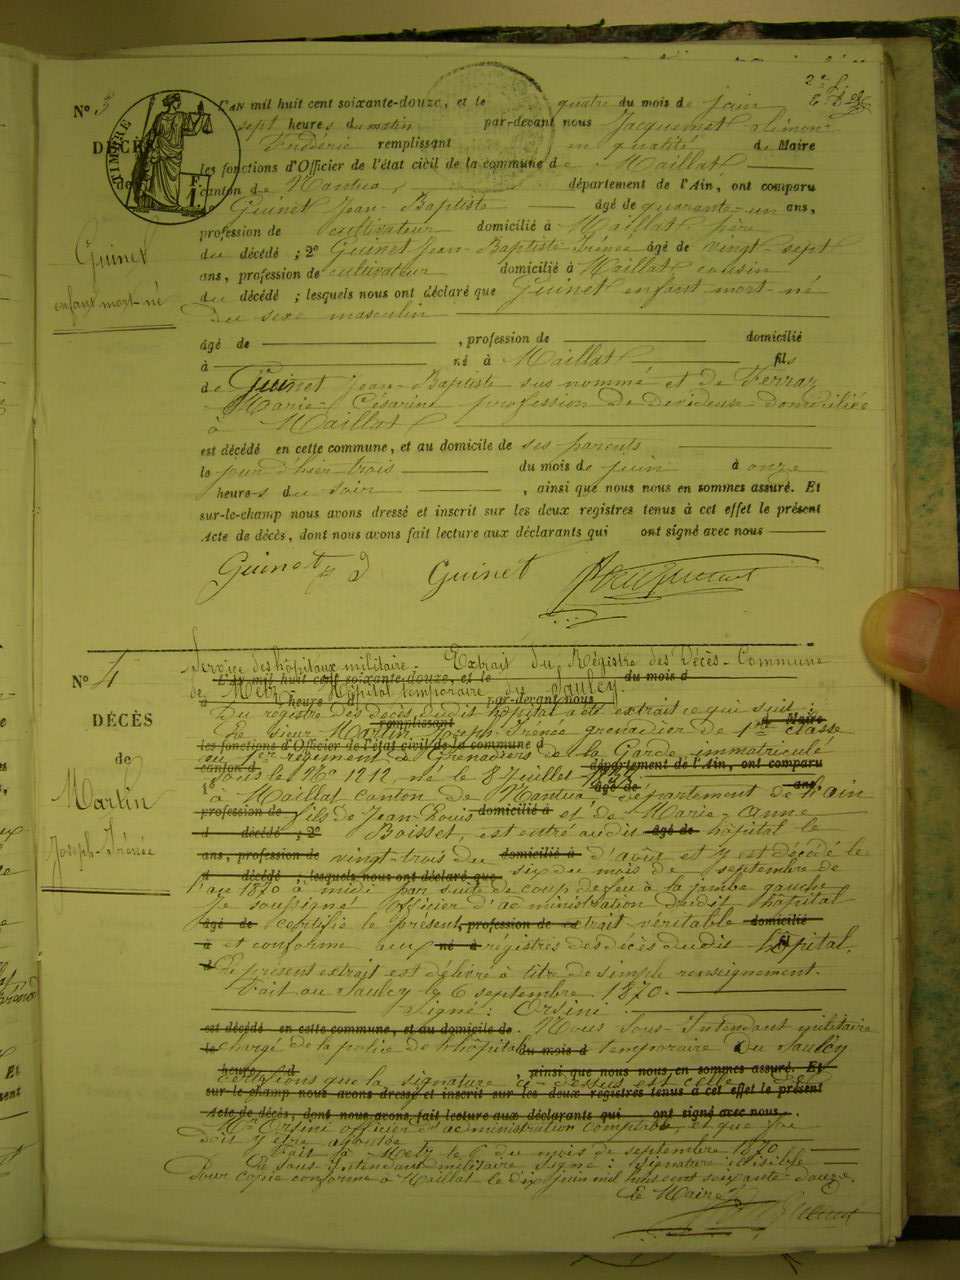 N° 3
DÉCÈS
de
TIMBRE
Guinet
enfant mort-né
L'AN mil huit cent soixante-douze, et le quatre du mois de juin
sept heures du matin par-devant nous Jacquemet
remplissant en qualité de Maire
les fonctions d'Officier de l'état civil de la commune de Maillat
canton de Nantua, département de l'Ain, ont comparu
Guinet Jean-Baptiste âgé de quarante-un ans,
profession de cultivateur domicilié à Maillat père
du décédé ; 2° Guinet Jean-Baptiste-Irénée âgé de vingt sept
ans, profession de cultivateur domicilié à Maillat cousin
du décédé ; lesquels nous ont déclaré que Guinet enfant mort-né
du sexe masculin
âgé de , profession de domicilié
à né à Maillat fils
de Guinet Jean-Baptiste sus nommé et de Ferray
Marie-Césarine profession de devideuse domiciliée
à Maillat
est décédé en cette commune, et au domicile de ses parents
le jour d'hier trois du mois de juin à onze
heures du soir , ainsi que nous nous en sommes assuré. Et
sur-le-champ nous avons dressé et inscrit sur les deux registres tenus à cet effet le présent
Acte de décès, dont nous avons fait lecture aux déclarants qui ont signé avec nous
Guinet Guinet Jacquemet
N° 4
DÉCÈS
de
Martin
Joseph-Irénée
Service des hôpitaux militaire. Extrait du Régistre des Décès. Commune
de Metz. Hôpital temporaire du Saulcy.
Du registre des décès dudit hôpital a été extrait ce qui suit
Le sieur Martin Joseph-Irénée grenadier de 1re classe
au 1er régiment de Grenadiers de la Garde immatriculé
sous le N° 1212, né le 8 Juillet
à Maillat canton de Nantua département de l'ain
fils de Jean-Louis et de Marie-Anne
Boisset, est entré audit hôpital le
vingt-trois du d'août et y est décédé le
six du mois de septembre de
l'an 1870 à midi par suite de coup de feu à la jambe gauche
Je soussigné officier d'administration dudit hôpital
certifie le présent extrait véritable
et conforme aux régistres des décès dudit hôpital.
Le présent extrait est délivré à titre de simple renseignement.
Fait au Saulcy le 6 septembre 1870.
Signé : Orsini
Nous Sous-Intendant militaire
chargé de la police de l'hôpital temporaire du Saulcy
certifions que la signature ci-dessus est celle de
Mr Orsini officier d'administration comptable, et que foi
doit y être ajoutée
Fait à Metz le 6 du mois de septembre 1870
Le Sous-Intendant militaire signé : signature illisible
Pour copie conforme à Maillat le dix juin mil huit cent soixante-douze.
Le Maire
Jacquemet